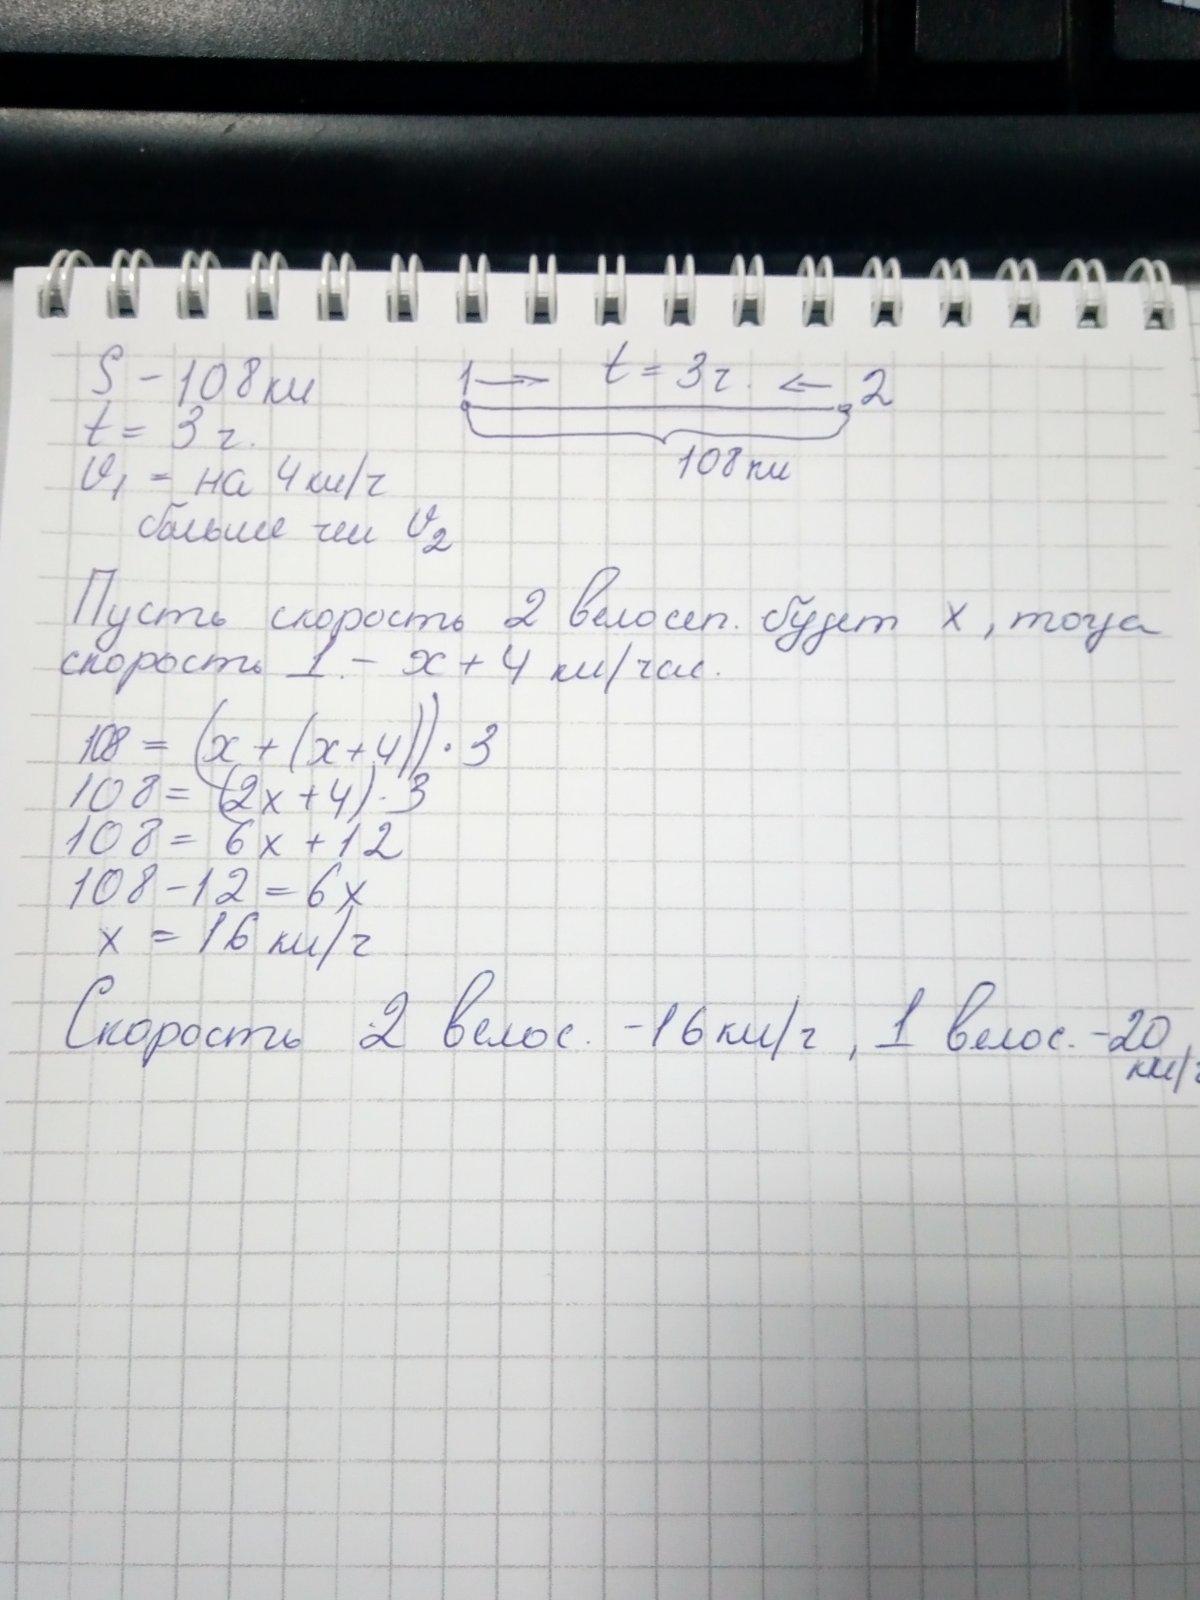 S - 108 км
t = 3 ч.
V₁ - на 4 км/ч
больше чем V₂
1 → t = 3 ч. ← 2
108 км
Пусть скорость 2 велосип. будет x, тогда
скорость 1 - x + 4 км/час.
108 = (x + (x+4)) · 3
108 = (2x + 4) · 3
108 = 6x + 12
108 - 12 = 6x
x = 16 км/ч
Скорость 2 велос. - 16 км/ч, 1 велос. - 20
км/ч